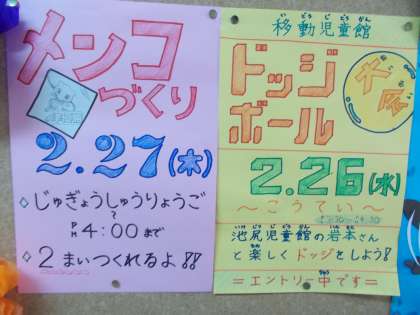 メンコ
づくり
2.27(木)
じゅぎょうしゅうりょうご
～
PM 4:00まで
2まいつくれるよ!!
移動児童館
いどうじどうかん
ドッジ
ボール
大会
2.26(水)
～こうてい～
池尻児童館の岩本さん
と楽しくドッジをしよう!
＝エントリー中です＝